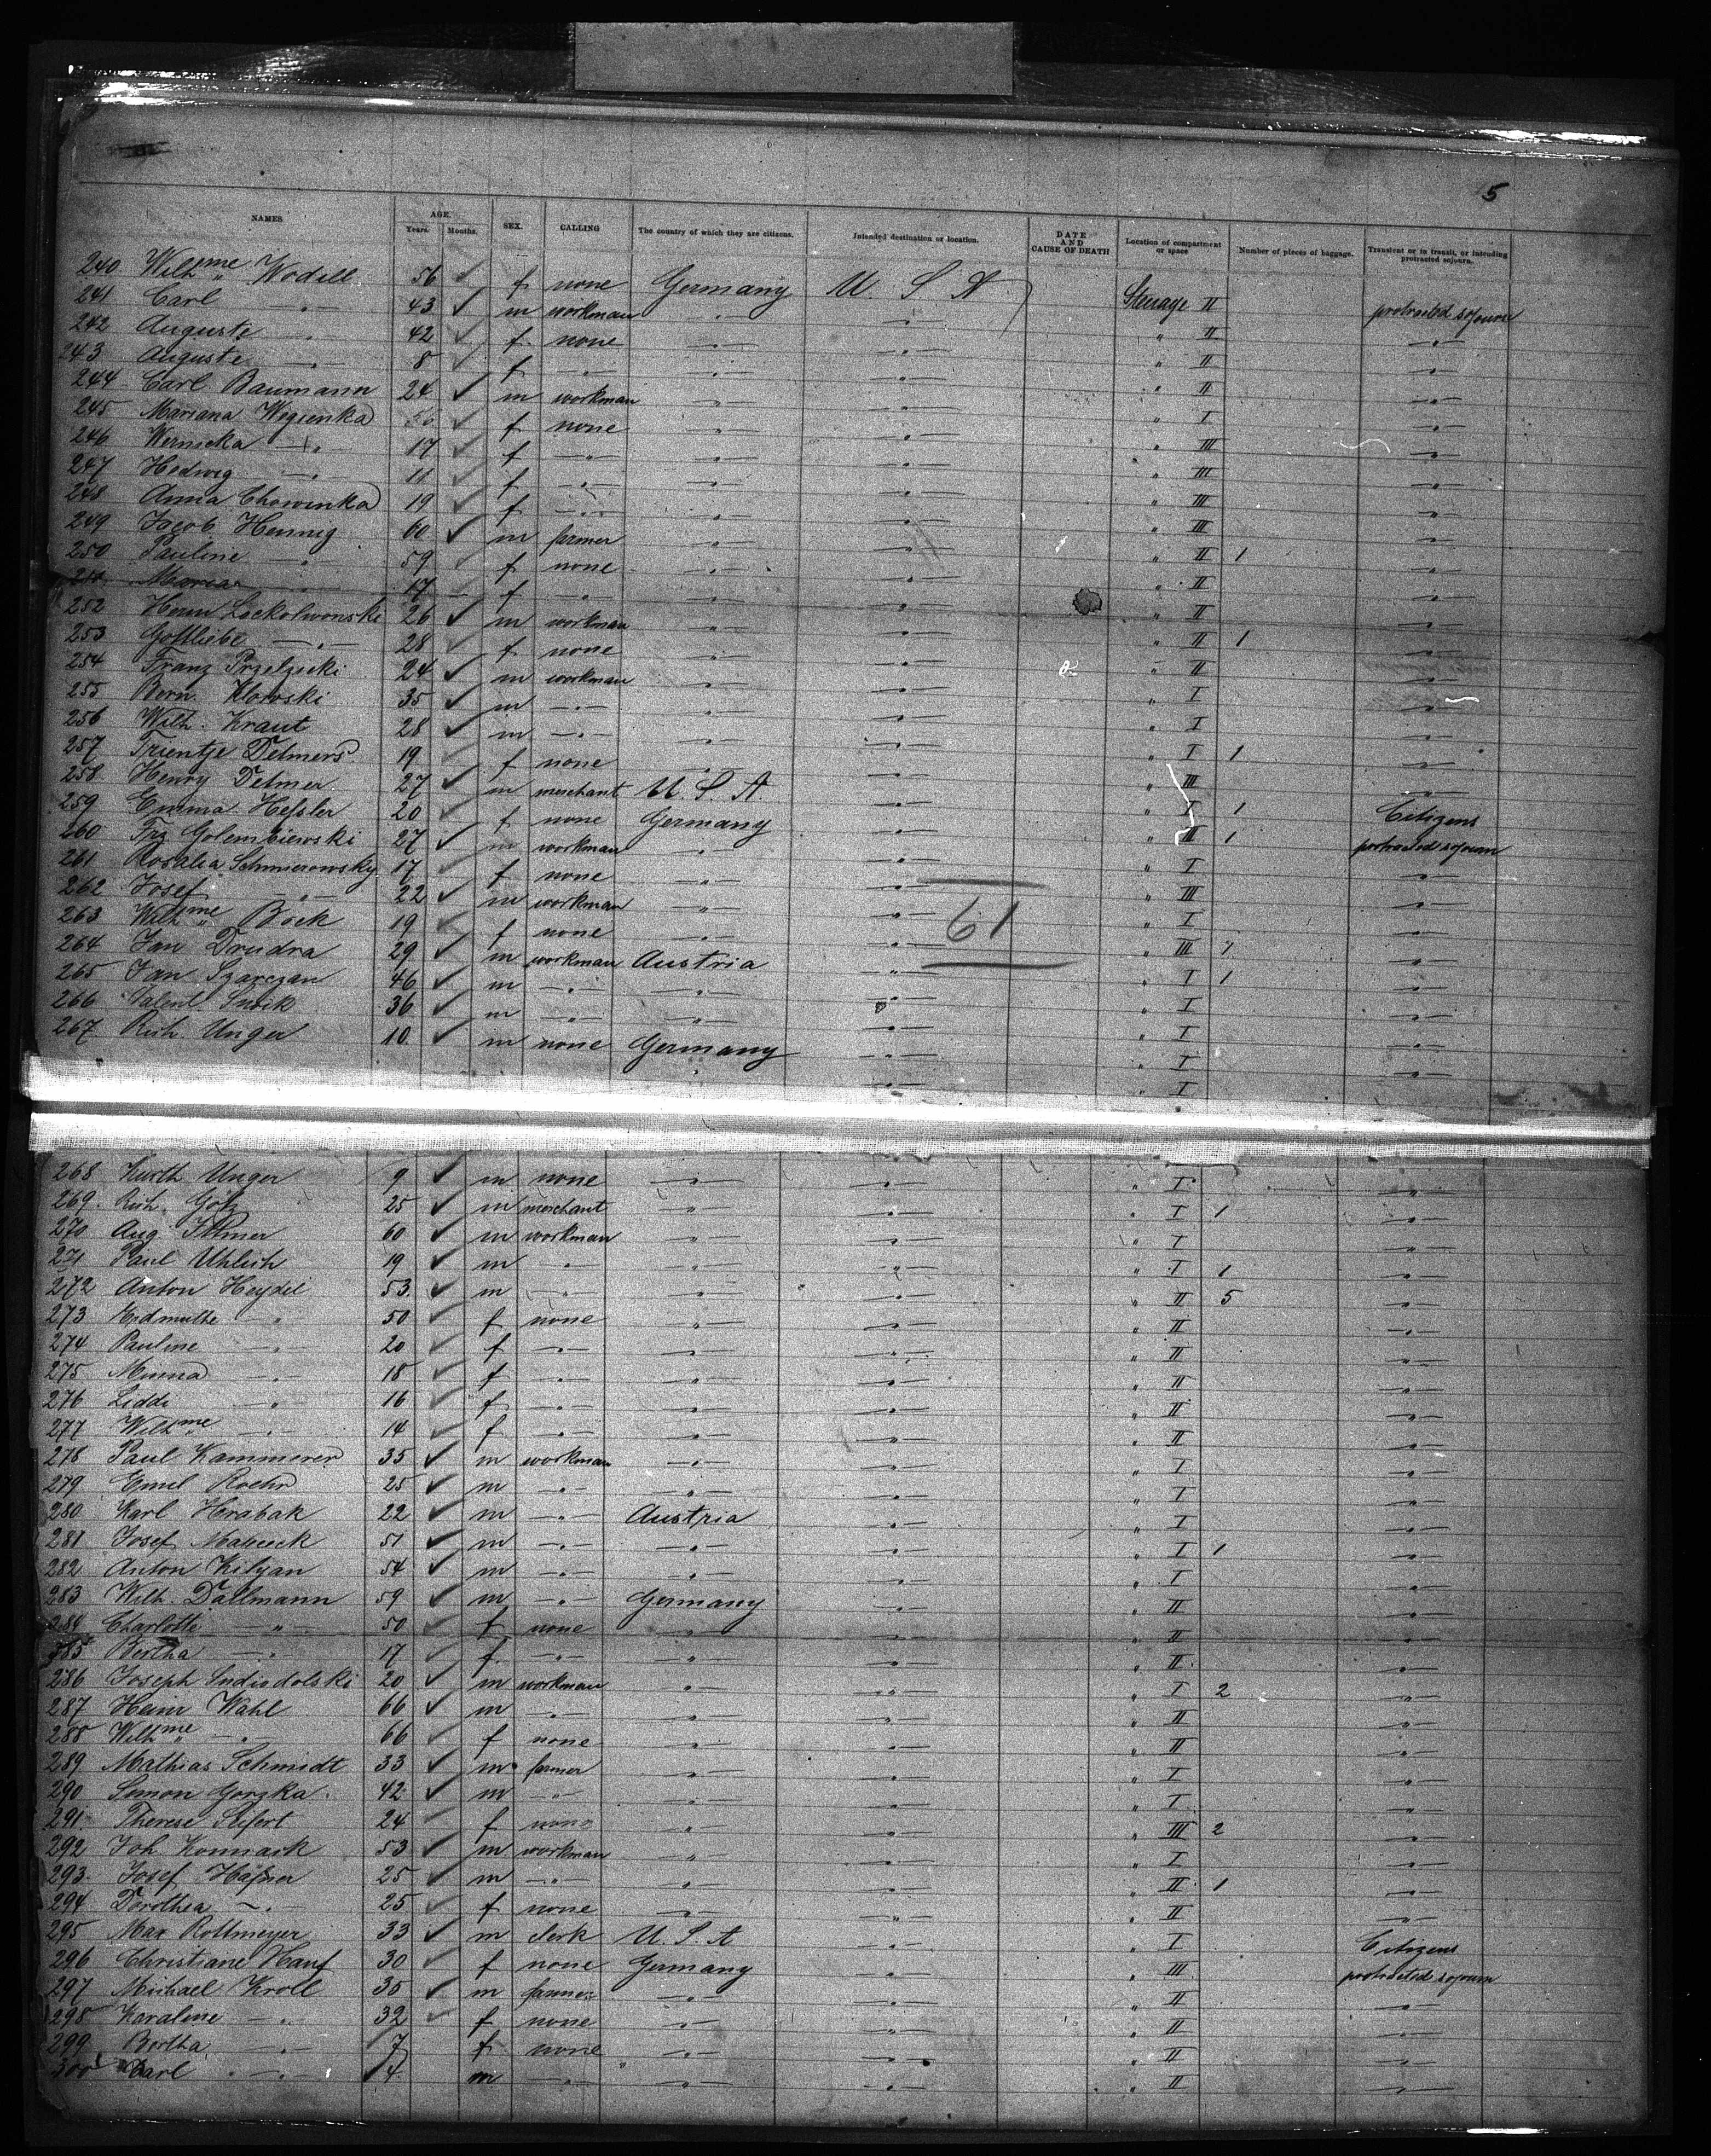 5
NAMES. AGE. SEX. CALLING The country of which they are citizens. Intended destination or location. DATE AND CAUSE OF DEATH Location of compartment or space Number of pieces of baggage. Transient or in transit, or intending protracted sojourn.
Years. Months.
240 Wilhme Wodill 56 ✓ f none Germany U S A Steerage II protracted sojourn
241 Carl —"— 43 ✓ m workman —"— —"— " II —"—
242 Auguste —"— 42 ✓ f. none —"— —"— " II —"—
243 Auguste —"— 8 ✓ f —"— —"— —"— " II —"—
244 Carl Baumann 24 ✓ m workman —"— —"— " I —"—
245 Mariana Wegienka ✓ f none —"— —"— " III —"—
246 —"— 17 ✓ f —"— —"— —"— " III —"—
247 Hedwig —"— 11 ✓ f —"— —"— —"— " III —"—
248 Anna Chowinka 19 ✓ f —"— —"— —"— " III —"—
249 Jacob Hennig 60 ✓ m farmer —"— —"— " II 1 —"—
250 Pauline —"— 59 ✓ f none —"— —"— " II —"—
Maria 17 f —"— —"— —"— " II —"—
252 Herm 26 ✓ m workman —"— —"— " II 1 —"—
253 Gottliebe —"— 28 ✓ f none —"— —"— " II —"—
254 Franz 24 ✓ m workman —"— —"— " I —"—
255 Bern. Klowski 35 ✓ m —"— —"— —"— " I —"—
256 Wilh. Kraut 28 ✓ m —"— —"— —"— " I 1 —"—
257 Trientje Detmers 19 ✓ f none —"— —"— " III —"—
258 Henry Detmer 27 ✓ m merchant U. S. A. —"— " I 1 Citizens
259 Emma Heßler 20 ✓ f none Germany —"— " III 1 protracted sojourn
260 Frz Golembiewski 27 ✓ m workman —"— —"— " I —"—
261 Rosalia Schmierowsky 17 ✓ f none —"— —"— " III —"—
262 Josef —"— 22 ✓ m workman —"— —"— " I —"—
61
263 Wilhme Bock 19 ✓ f none —"— —"— " III 1 —"—
264 Jan Drudra 29 ✓ m workman Austria —"— " I 1 —"—
265 Jan Szarczan 46 ✓ m —"— —"— —"— " I —"—
266 36 ✓ m —"— —"— —"— " I —"—
267 Rich. Unger 10. ✓ m none Germany —"— " I —"—
—"— " I
268 Kurth Unger 9 ✓ m none —"— —"— " I —"—
269. Rich. Götz 25 ✓ m merchant —"— —"— " I 1 —"—
270 Aug. 60 ✓ m workman —"— —"— " I —"—
271 Paul Uhlich 19 ✓ m —"— —"— —"— " I 1 —"—
272 Anton Heydel 53. ✓ m —"— —"— —"— " II 5 —"—
273 Erdmuthe —"— 50 ✓ f none —"— —"— " II —"—
274 Pauline —"— 20 ✓ f —"— —"— —"— " II —"—
275 Minna —"— 18 ✓ f —"— —"— —"— " II —"—
276 Liddi —"— 16 ✓ f —"— —"— —"— " II —"—
277 Wilhme —"— 14 ✓ f —"— —"— —"— " II —"—
278 Paul Kammerer 35 ✓ m workman —"— —"— " I —"—
279 Emil Roehr 25 ✓ m —"— —"— —"— " I —"—
280 Karl Hrabak 22 ✓ m —"— Austria —"— " I —"—
281 Josef 51 ✓ m —"— —"— —"— " I 1 —"—
282 Anton Kilyan 54 ✓ m —"— —"— —"— " I —"—
283 Wilh. Dallmann 59 ✓ m —"— Germany —"— " II —"—
284 Charlotte —"— 50 ✓ f none —"— —"— " II —"—
285 Bertha —"— 17 ✓ f —"— —"— —"— " II —"—
286 Joseph 20 ✓ m workman —"— —"— " I 2 —"—
287 Heinr Wahl 66 ✓ m —"— —"— —"— " II —"—
288 Wilhme —"— 66 ✓ f none —"— —"— " II —"—
289 Mathias Schmidt 33 ✓ m farmer —"— —"— " I —"—
290 Simon Gorzka 42 ✓ m —"— —"— —"— " I —"—
291 Therese Seifert 24 ✓ f none —"— —"— " III 2 —"—
292 Joh 53 ✓ m workman —"— —"— " I —"—
293. Josef Häfner 25 ✓ m —"— —"— —"— " II 1 —"—
294 Dorothea —"— 25 ✓ f none —"— —"— " II —"—
295 Max Rottmeyer 33 ✓ m clerk U. S. A —"— " I Citizens
296 Christiane Hauf 30 ✓ f none Germany —"— " III protracted sojourn
297 Michael Kroll 35 ✓ m farmer —"— —"— " II —"—
298 Karaline —"— 32 ✓ f none —"— —"— " II —"—
299 Bertha —"— 7 f none —"— —"— " II —"—
300 Carl —"— 4 m —"— —"— —"— " II —"—